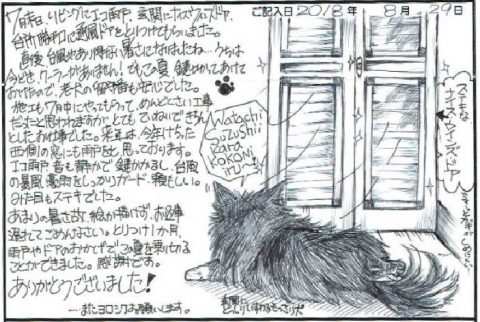 ご記入日 2018年 8月 29日
7月末、リビングにエコ雨戸、玄関にナイスウィンズドア、
台所勝手口に通風ドアをとりつけてもらいました。
直後、台風やあり得ない暑さになりましたね…うちは
今どき、クーラーがありません!でもこの夏、鍵をかけてあけて
おけるので、老犬の留守番も安心でした。
他にも7月中にやってもらって、めんどくさい工事
だなぁと思われますが、とてもていねいできちん
としたお仕事でした。
西側の窓にも雨戸を、と思っております。
エコ雨戸、音も静かで、鍵かかるし、台風
の暴風、豪雨をしっかりガード、頼もしい。
みた目もステキでした。
あまりの暑さ故、絵が描けず、お返事
遅れてごめんなさい。とりつけ1か月、
雨戸やドアのおかげで、この夏を乗りきる
ことができました。感謝です。
ありがとうございました!
……またヨロシクお願いします。
Watachi
Suzushii
Kara
Kokoni
iru〜
ステキな
ナイスウィンズドア